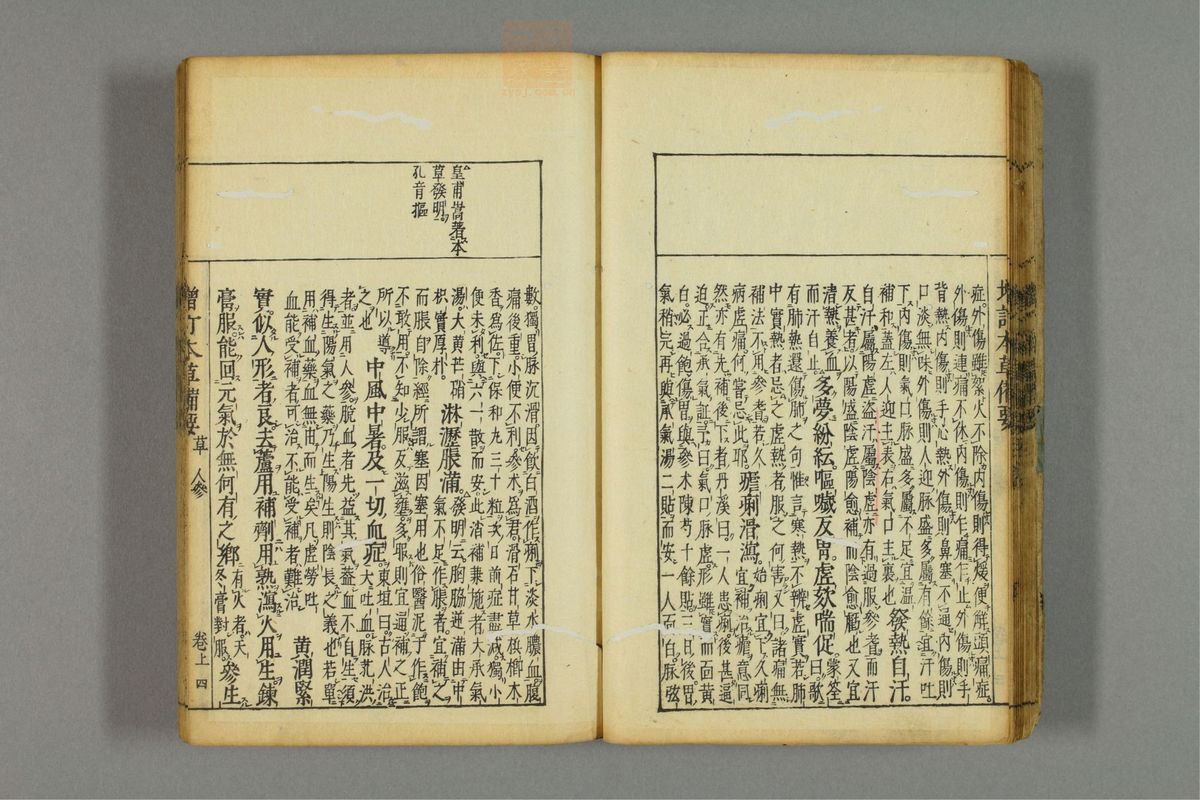 症外傷雖絮火不除內傷則得煖便解頭痛症
外傷則連痛不休內傷則乍痛乍止外傷則手
背熱內傷則手心熱外傷則鼻塞不通內傷則
口淡無味外傷則人迎脉盛多屬有餘宜汗吐
下內傷則氣口脉盛多屬不足宜溫
補和蓋左人迎主表右氣口主裏也發熱自汗
自汗屬陽虛盜汗屬陰虛亦有過服參耆而汗
反甚者以陽盛陰虛陽愈補而陰愈虧也又宜
清熱養血
而汗自止多夢紛紜嘔噦反胃虛欬喘促曰歌
有肺熱還傷肺之句惟言寒熱不辨虛實若肺
中實熱者忌之虛熱者服之何害又曰諸痛無
補法不用參耆若久
病虛痛何嘗忌此耶瘧痢滑瀉始痢宜下久痢
宜補治瘧意同
然亦有先補後下者丹溪曰一人患痢後甚逼
迫正合承氣証予曰氣口脉虛形雖實而面黃
白必過飽傷胃與參术陳芍十餘貼三日後胃
氣稍完再與承氣湯二貼而安一人面白脉弦
增訂本草備要
皇甫嵩著本
草發明
孔音摳
數獨胃脉沉滑因飲白酒作痢下淡水膿血腹
痛後重小便不利參术為君滑石甘草梹榔木
香為佐下保和丸三十粒次日前症盡減獨小
便未利與六一散而安此消補兼施者大承氣
湯大黃芒硝
枳實厚朴淋瀝脹滿發明云胸脇逆滿由中
氣不足作脹者宜補之
而脹自除經所謂塞因塞用也俗醫泥于作飽
不敢用不知少服反滋壅多服則宜通補之正
所以導
之也中風中暑及一切血症東垣曰古人治
大吐血脉芤洪
者並用人參脫血者先益其氣蓋血不自生須
得生陽氣之藥乃生陽生則陰長之義也若單
用補血藥血無由而生矣凡虛勞吐
血能受補者可治不能受補者難治黃潤緊
實似人形者良去蘆用補劑用熟瀉火用生鍊
膏服能回元氣於無何有之鄉有火者天
冬膏對服參生
增訂本草備要
草
人參
卷上
四